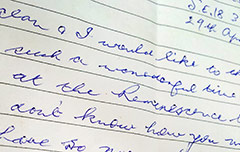 S.E.18 3
29th Ap
I would like to
such a wonderful time
at the Reminiscence
don't know how you
have so